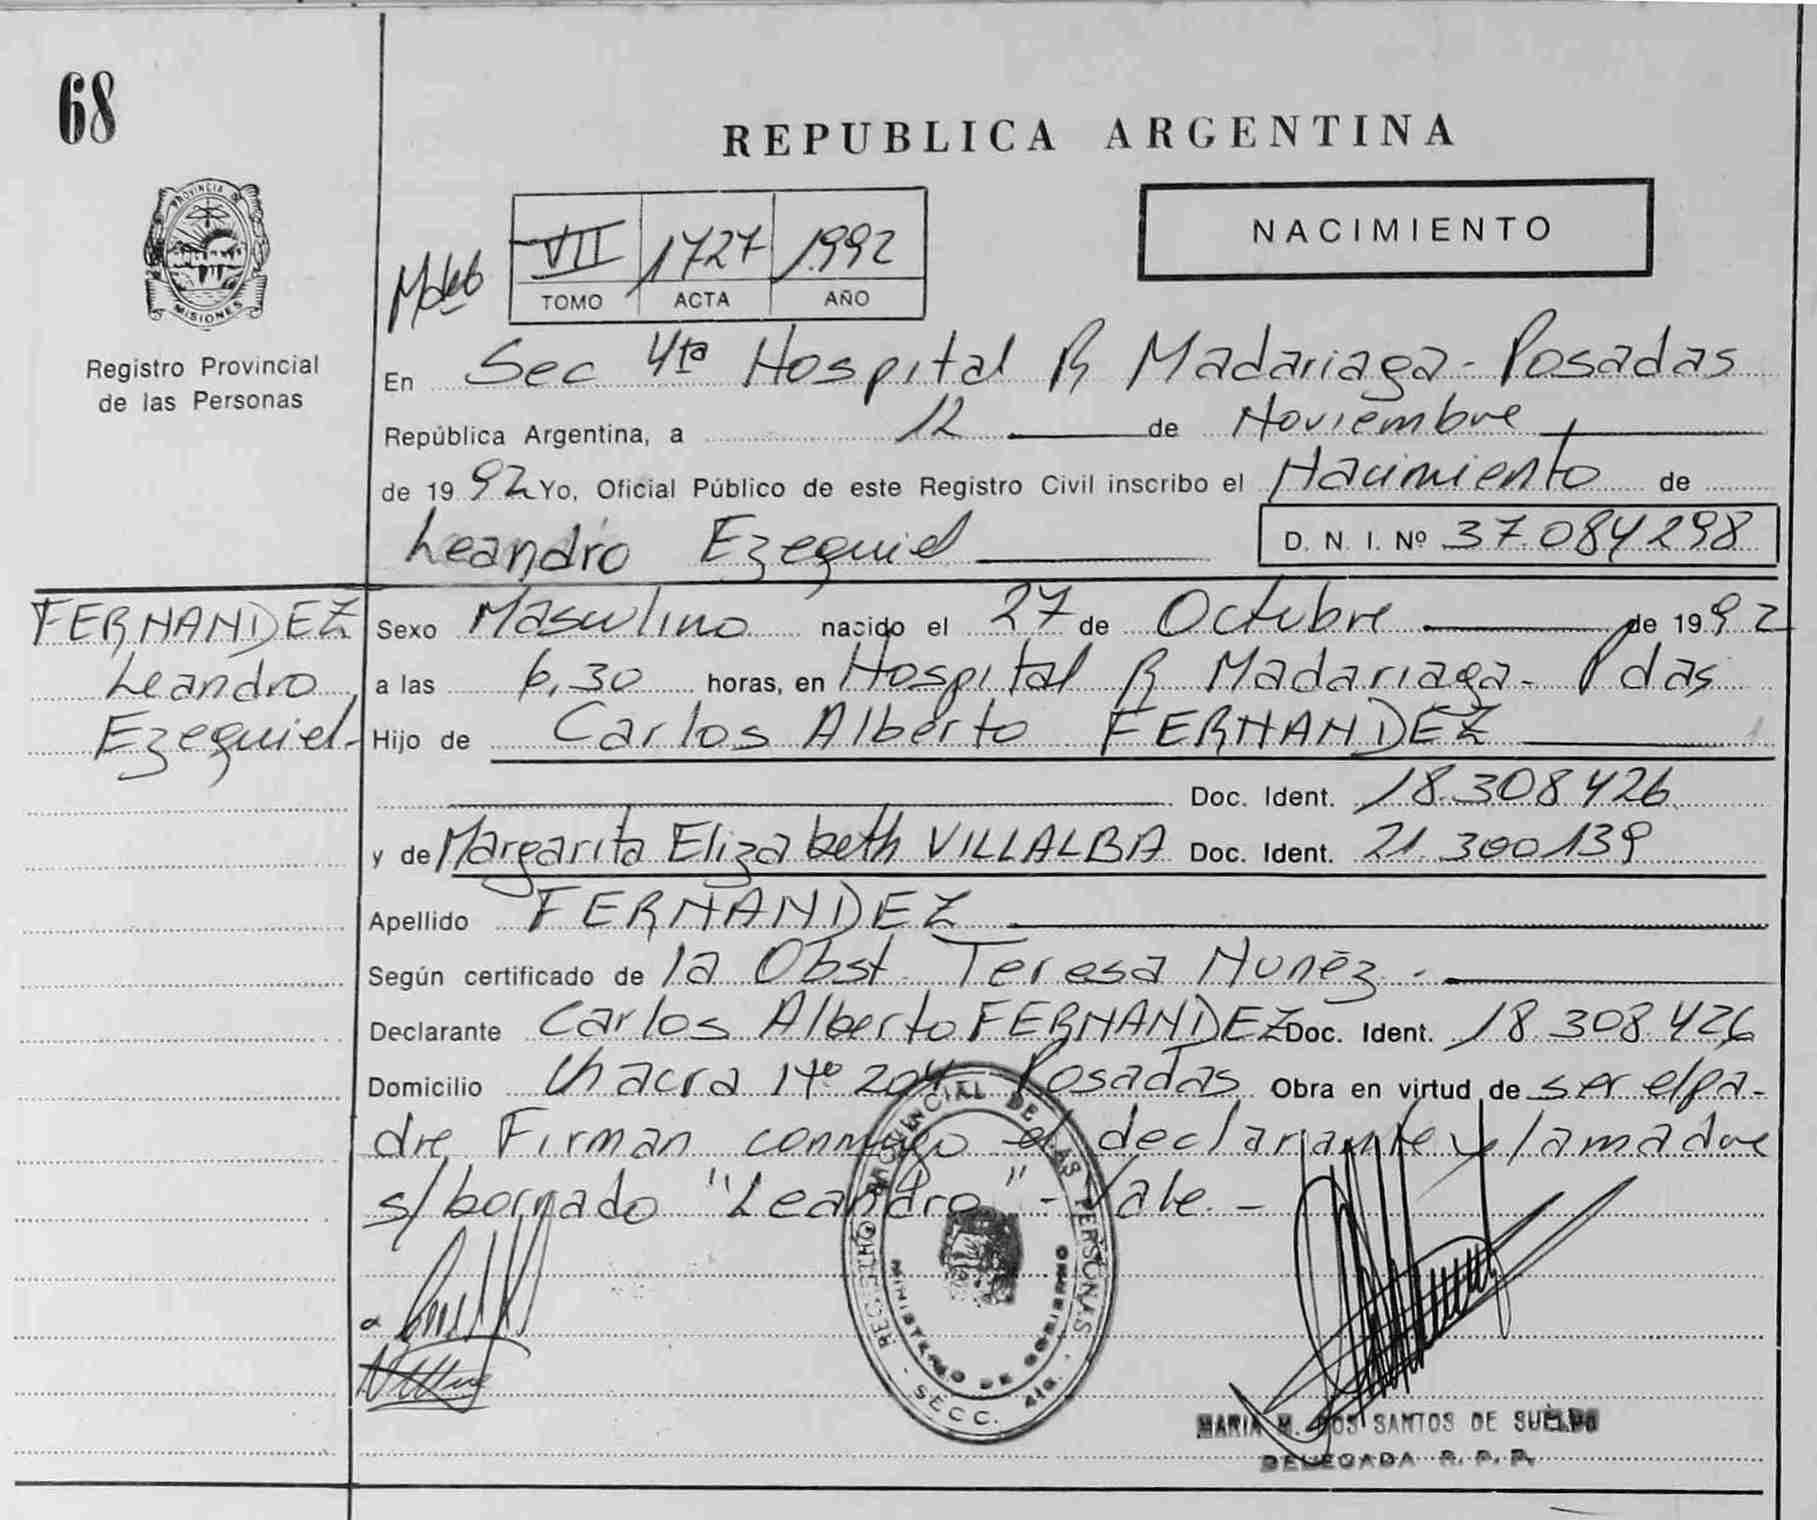 68
REPUBLICA ARGENTINA
PROVINCIA D
MISIONES
Registro Provincial
de las Personas
VII 1727 1992
TOMO ACTA AÑO
NACIMIENTO
En Sec 4ta Hospital R Madariaga - Posadas
República Argentina, a 12 de Noviembre
de 1992 Yo, Oficial Público de este Registro Civil inscribo el Nacimiento de
Leandro Ezequiel D. N. I. Nº 37.084.298
FERNANDEZ
Leandro
Ezequiel.-
Sexo Masculino nacido el 27 de Octubre de 1992
a las 6,30 horas, en Hospital R Madariaga - Pdas
Hijo de Carlos Alberto FERNANDEZ
Doc. Ident. 18.308.426
y de Margarita Elizabeth VILLALBA Doc. Ident. 21.300.139
Apellido FERNANDEZ
Según certificado de la Obst. Teresa Nuñez.-
Declarante Carlos Alberto FERNANDEZ Doc. Ident. 18.308.426
Domicilio Chacra Nº 204 Posadas Obra en virtud de ser el pa-
dre Firman conmigo el declarante y la madre
s/borrado "Leandro" - Vale.-
REGISTRO PROVINCIAL DE LAS PERSONAS
MINISTERIO DE GOBIERNO
SECC. 4ta.
MARIA M. DOS SANTOS DE SUELDO
DELEGADA R. P. P.